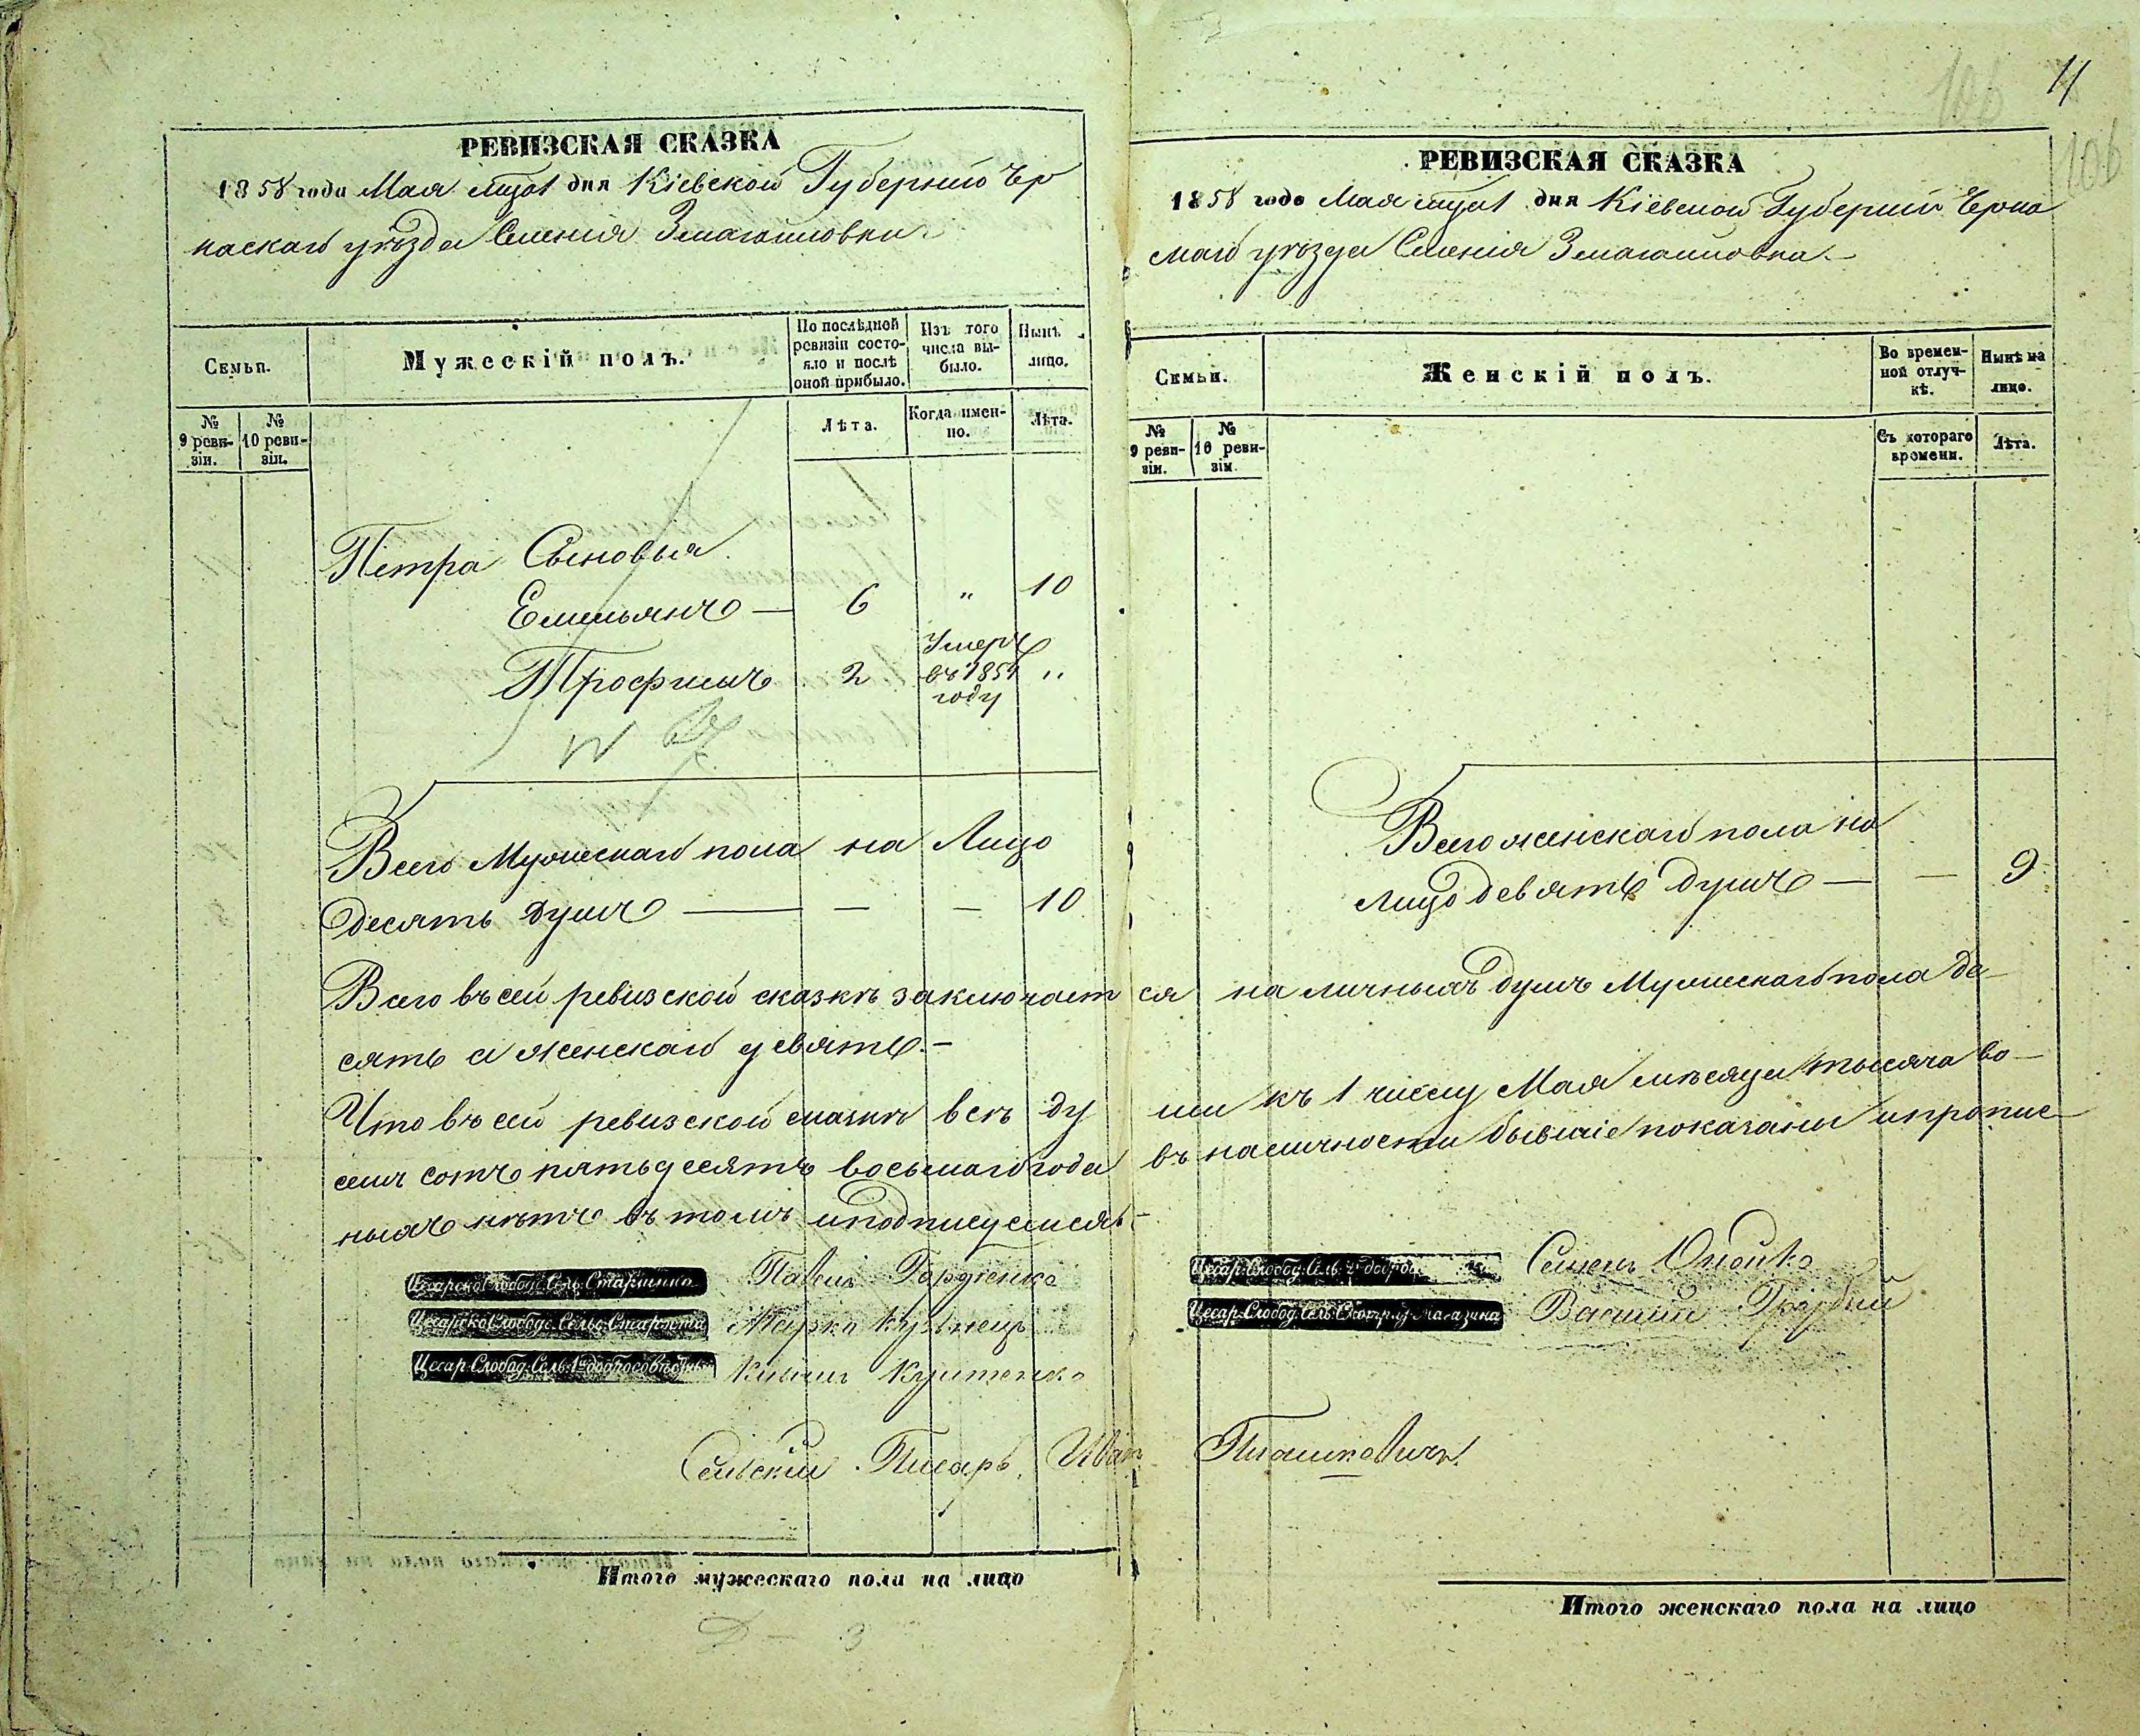 РЕВИЗСКАЯ СКАЗКА
1858 года Мая 1 дня Кіевской Губерніи Чер
каскаго уѣзда Селенія Змагайловки
Семьи.
Мужескій полъ.
По послѣдней ревизіи состояло и послѣ оной прибыло.
Изъ того числа выбыло.
Нынѣ лицо.
№ 9 ревизіи.
№ 10 ревизіи.
Лѣта.
Когда именно.
Лѣта.
Петра Сыновья
Емельянъ — 6 „ 10
Трофимъ 2 Умеръ въ 1854 году „
Всего Мужескаго пола на Лицо
десять душъ — — — 10
Всего въ сей ревизской сказкѣ заключает
сять а женскаго девять. —
Что въ сей ревизской сказкѣ всѣ ду
семь сотъ пятьдесятъ восьмаго года
ныхъ нѣтъ въ томъ и подписуемся. —
Цесарско Слободс. Сель. Старшина Павелъ Гордіенко
Цесарско Слободс. Сельс. Староста Марко Кузнецъ
Цесар. Слобод. Сель. 1й добросовѣстный Кушненко
Сельскій Писарь, Иван
Итого мужескаго пола на лицо
Д — 3
11
106
106
РЕВИЗСКАЯ СКАЗКА
1858 года Мая 1 дня Кіевской Губерніи Черка
скаго уѣзда Селенія Змагайловка. —
Семьи.
Женскій полъ.
Во временной отлучкѣ.
Нынѣ на лицо.
№ 9 ревизіи.
№ 10 ревизіи.
Съ котораго времени.
Лѣта.
Всего женскаго пола на
лицо девять душъ — — 9
ся на личныхъ душъ Мужескаго пола де-
ши къ 1 числу Мая мѣсяца тысяча во-
въ наличности бывшіе показаны и пропис-
Цесар. Слобод. Сель. 2й добро Семенъ
Цесар. Слобод. Сель. Смотри. Магазина Василій Грубый
Пташкевичъ
Итого женскаго пола на лицо